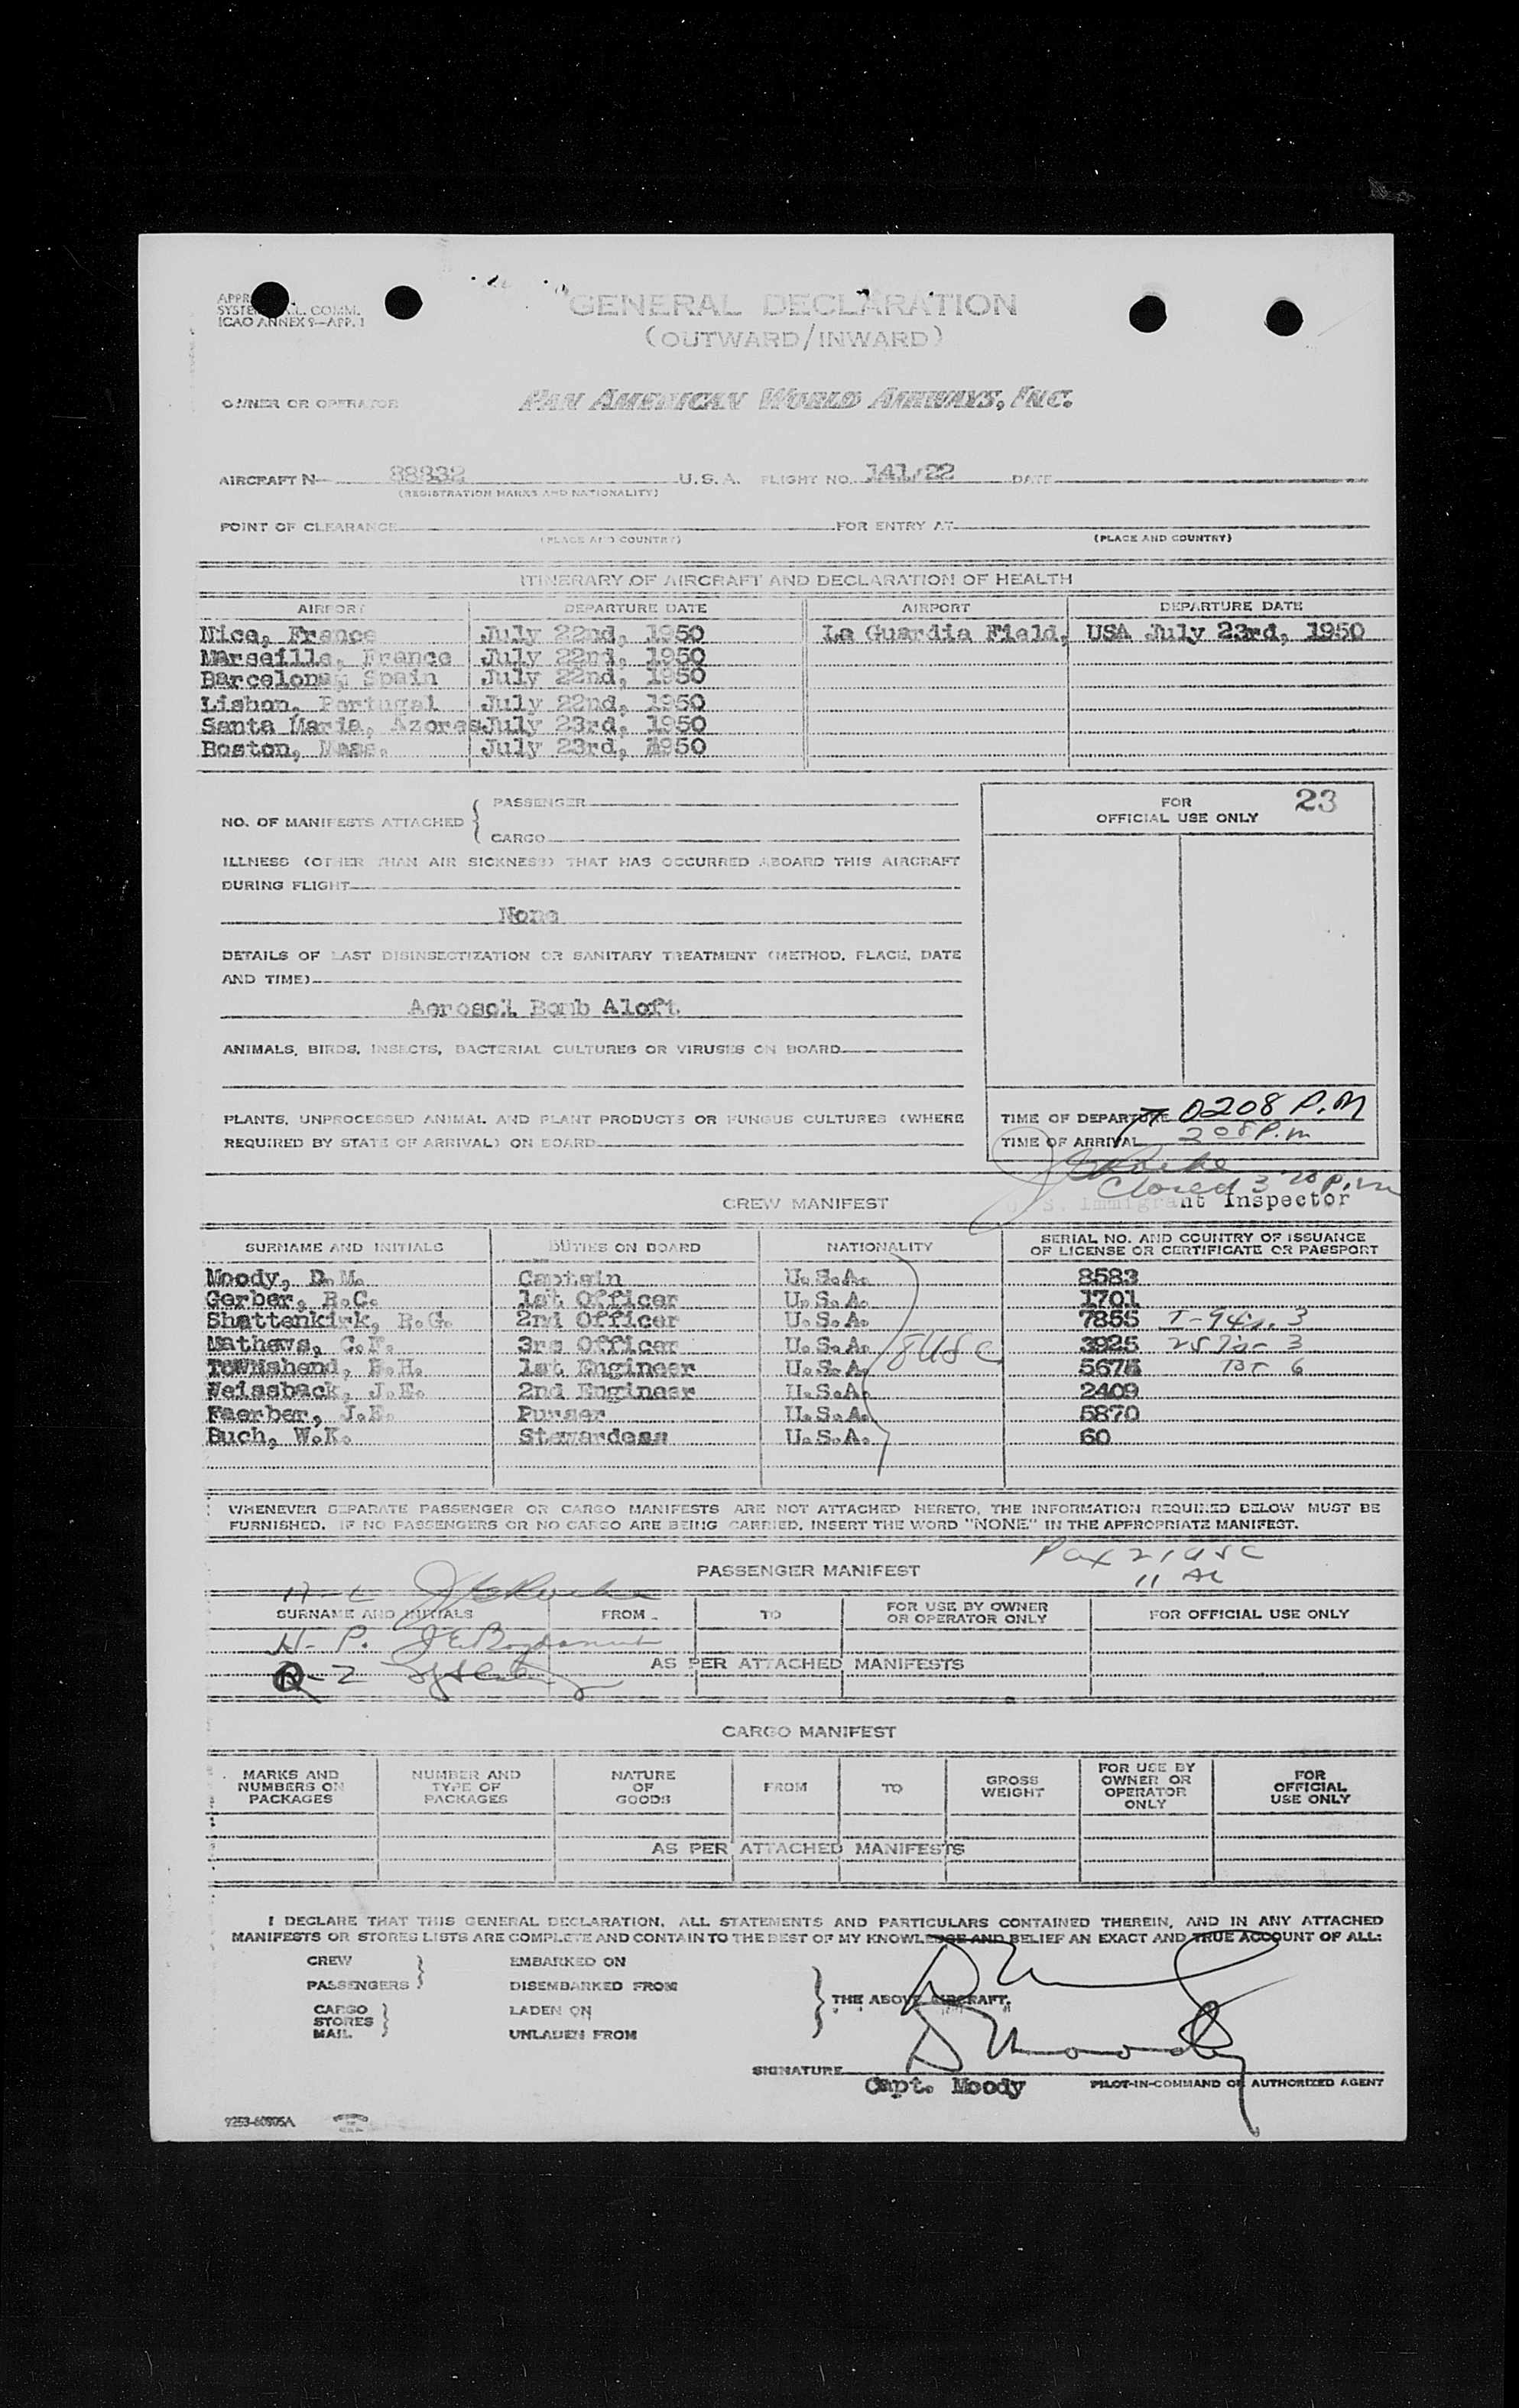 GENERAL DECLARATION
(OUTWARD/INWARD)
SYSTEM L. COMM.
ICAO ANNEX 9—APP. 1
OWNER OR OPERATOR PAN AMERICAN WORLD AIRWAYS, INC.
AIRCRAFT N- 88832 U.S.A. FLIGHT NO. 141/22 DATE
(REGISTRATION MARKS AND NATIONALITY)
POINT OF CLEARANCE FOR ENTRY AT
(PLACE AND COUNTRY) (PLACE AND COUNTRY)
ITINERARY OF AIRCRAFT AND DECLARATION OF HEALTH
AIRPORT DEPARTURE DATE AIRPORT DEPARTURE DATE
Nice, France July 22nd, 1950 La Guardia Field, USA July 23rd, 1950
Marseille, France July 22nd, 1950
Barcelona, Spain July 22nd, 1950
Lisbon, Portugal July 22nd, 1950
Santa Maria, Azores July 23rd, 1950
Boston, Mass. July 23rd, 1950
NO. OF MANIFESTS ATTACHED { PASSENGER
CARGO
FOR OFFICIAL USE ONLY 23
ILLNESS (OTHER THAN AIR SICKNESS) THAT HAS OCCURRED ABOARD THIS AIRCRAFT
DURING FLIGHT
None
DETAILS OF LAST DISINSECTIZATION OR SANITARY TREATMENT (METHOD, PLACE, DATE
AND TIME)
Aerosol Bomb Aloft
ANIMALS, BIRDS, INSECTS, BACTERIAL CULTURES OR VIRUSES ON BOARD
PLANTS, UNPROCESSED ANIMAL AND PLANT PRODUCTS OR FUNGUS CULTURES (WHERE
REQUIRED BY STATE OF ARRIVAL) ON BOARD
TIME OF DEPARTURE 0208 P.M
TIME OF ARRIVAL 208 P.m
Closed 3 20 p.m
U. S. Immigrant Inspector
CREW MANIFEST
SURNAME AND INITIALS DUTIES ON BOARD NATIONALITY SERIAL NO. AND COUNTRY OF ISSUANCE OF LICENSE OR CERTIFICATE OR PASSPORT
Moody, D.M. Captain U.S.A. 8583
Gerber, R.C. 1st Officer U.S.A. 1701
Shattenkirk, R.G. 2nd Officer U.S.A. 7855
Mathews, C.F. 3rd Officer U.S.A. 8USC 3925
Townshend, E.H. 1st Engineer U.S.A. 5675
Weissback, J.E. 2nd Engineer U.S.A. 2409
Faerber, J.E. Purser U.S.A. 5870
Buch, W.K. Stewardess U.S.A. 60
WHENEVER SEPARATE PASSENGER OR CARGO MANIFESTS ARE NOT ATTACHED HERETO, THE INFORMATION REQUIRED BELOW MUST BE
FURNISHED. IF NO PASSENGERS OR NO CARGO ARE BEING CARRIED, INSERT THE WORD "NONE" IN THE APPROPRIATE MANIFEST.
Pax 21 USC
11 AL
PASSENGER MANIFEST
SURNAME AND INITIALS FROM TO FOR USE BY OWNER OR OPERATOR ONLY FOR OFFICIAL USE ONLY
AS PER ATTACHED MANIFESTS
CARGO MANIFEST
MARKS AND NUMBERS ON PACKAGES NUMBER AND TYPE OF PACKAGES NATURE OF GOODS FROM TO GROSS WEIGHT FOR USE BY OWNER OR OPERATOR ONLY FOR OFFICIAL USE ONLY
AS PER ATTACHED MANIFESTS
I DECLARE THAT THIS GENERAL DECLARATION, ALL STATEMENTS AND PARTICULARS CONTAINED THEREIN, AND IN ANY ATTACHED
MANIFESTS OR STORES LISTS ARE COMPLETE AND CONTAIN TO THE BEST OF MY KNOWLEDGE AND BELIEF AN EXACT AND TRUE ACCOUNT OF ALL:
CREW EMBARKED ON
PASSENGERS DISEMBARKED FROM
THE ABOVE AIRCRAFT.
CARGO LADEN ON
STORES
MAIL UNLADEN FROM
SIGNATURE D Moody
Capt. Moody PILOT-IN-COMMAND OR AUTHORIZED AGENT